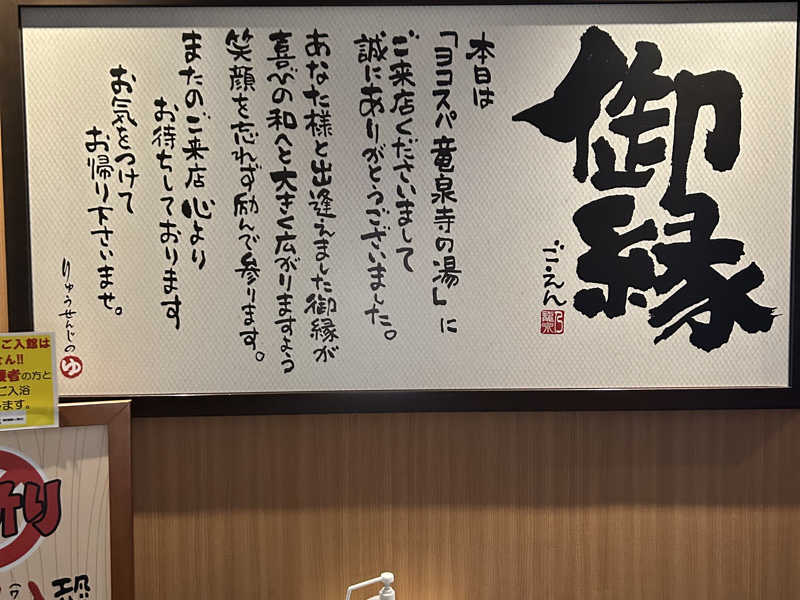 御縁
ごえん
本日は
「ヨコスパ竜泉寺の湯」に
ご来店くださいまして
誠にありがとうございました。
あなた様と出逢えました御縁が
喜びの和へと大きく広がりますよう
笑顔を忘れず励んで参ります。
またのご来店 心より
お待ちしております
お気をつけて
お帰り下さいませ。
りゅうせんじの
ゆ
ご入館は
せん!!
護者の方と
ご入浴
します。